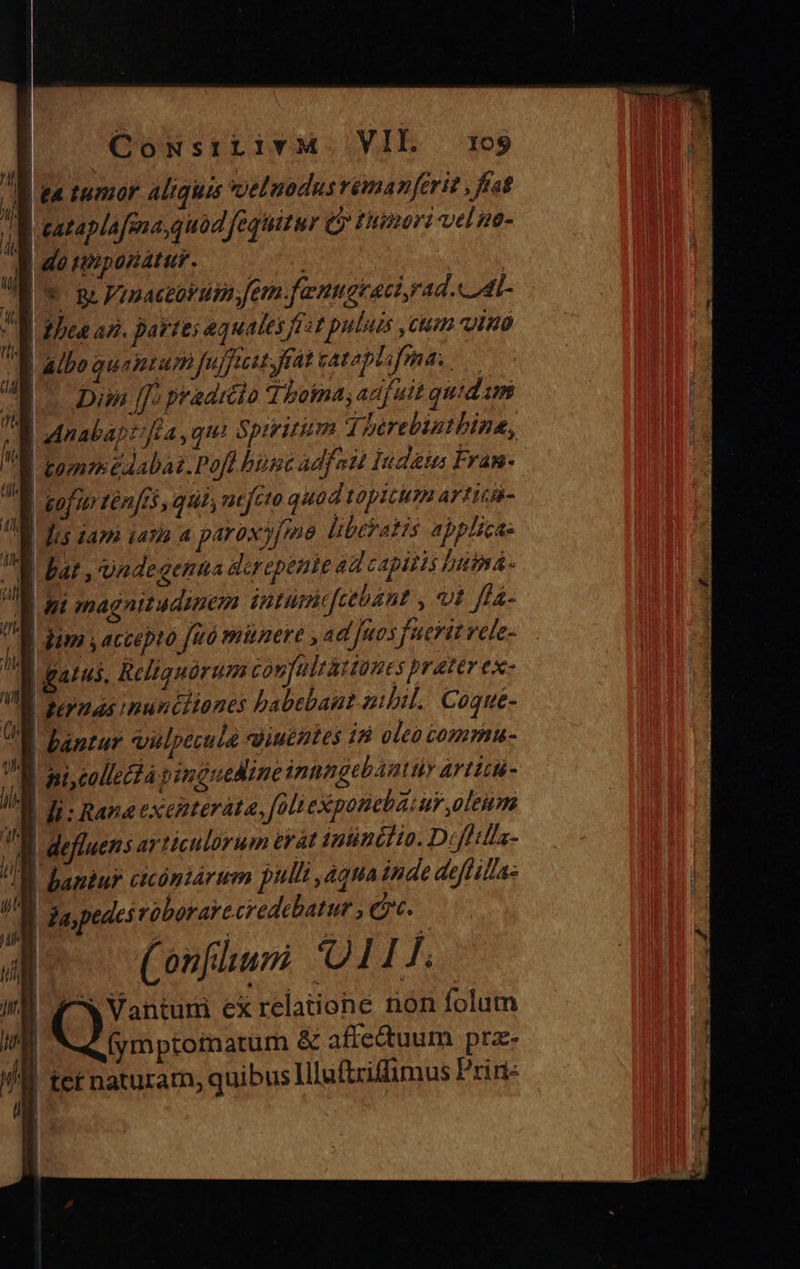 CONSILIVM VII. 109
ea tumor aliquis vel nodus remanserit, fiat
cataplasma, quod sequitur & tumori vel no-
do imponatur.
* ℞. Vinaceorum, sem. fœnugraci, rad. Al-
theæ an. partes æquales fiat puluis, cum vino
albo quantum sufficit, fiat cataplasma.
Dum ſſ; prædicto Thoma, adfuit quidam
Anabaptista, qui Spiritum Therebinthinæ,
commēdabat. Post hunc adfuit Iudæus Fran-
cofurtēnsis, qui, nescio quod topicum articu-
lis iam iam a paroxysmo liberatis applica-
bat, vnde genua derepente ad capitis humā-
ni magnitudinem intumescebant, vt sta-
tim, accepto suo munere, ad suos fuerit rele-
gatus. Reliquorum consultationes præter ex-
ternas inunctiones habebant nihil. Coque-
bantur vulpeculæ viuentes in oleo commu-
ni, collecta pinguedine inungebantur articu-
li: Ranæ exenteratæ, soli exponebātur, oleum
defluens articulorum erat inunctio. Destilla-
bantur ciconiarum pulli, aqua inde destilla-
ta, pedes roborare credebatur, &c.
Consilium VIII.
QVantum ex relatione non solum
symptomatum & affectuum præ-
ter naturam, quibus Illustrissimus Prin-